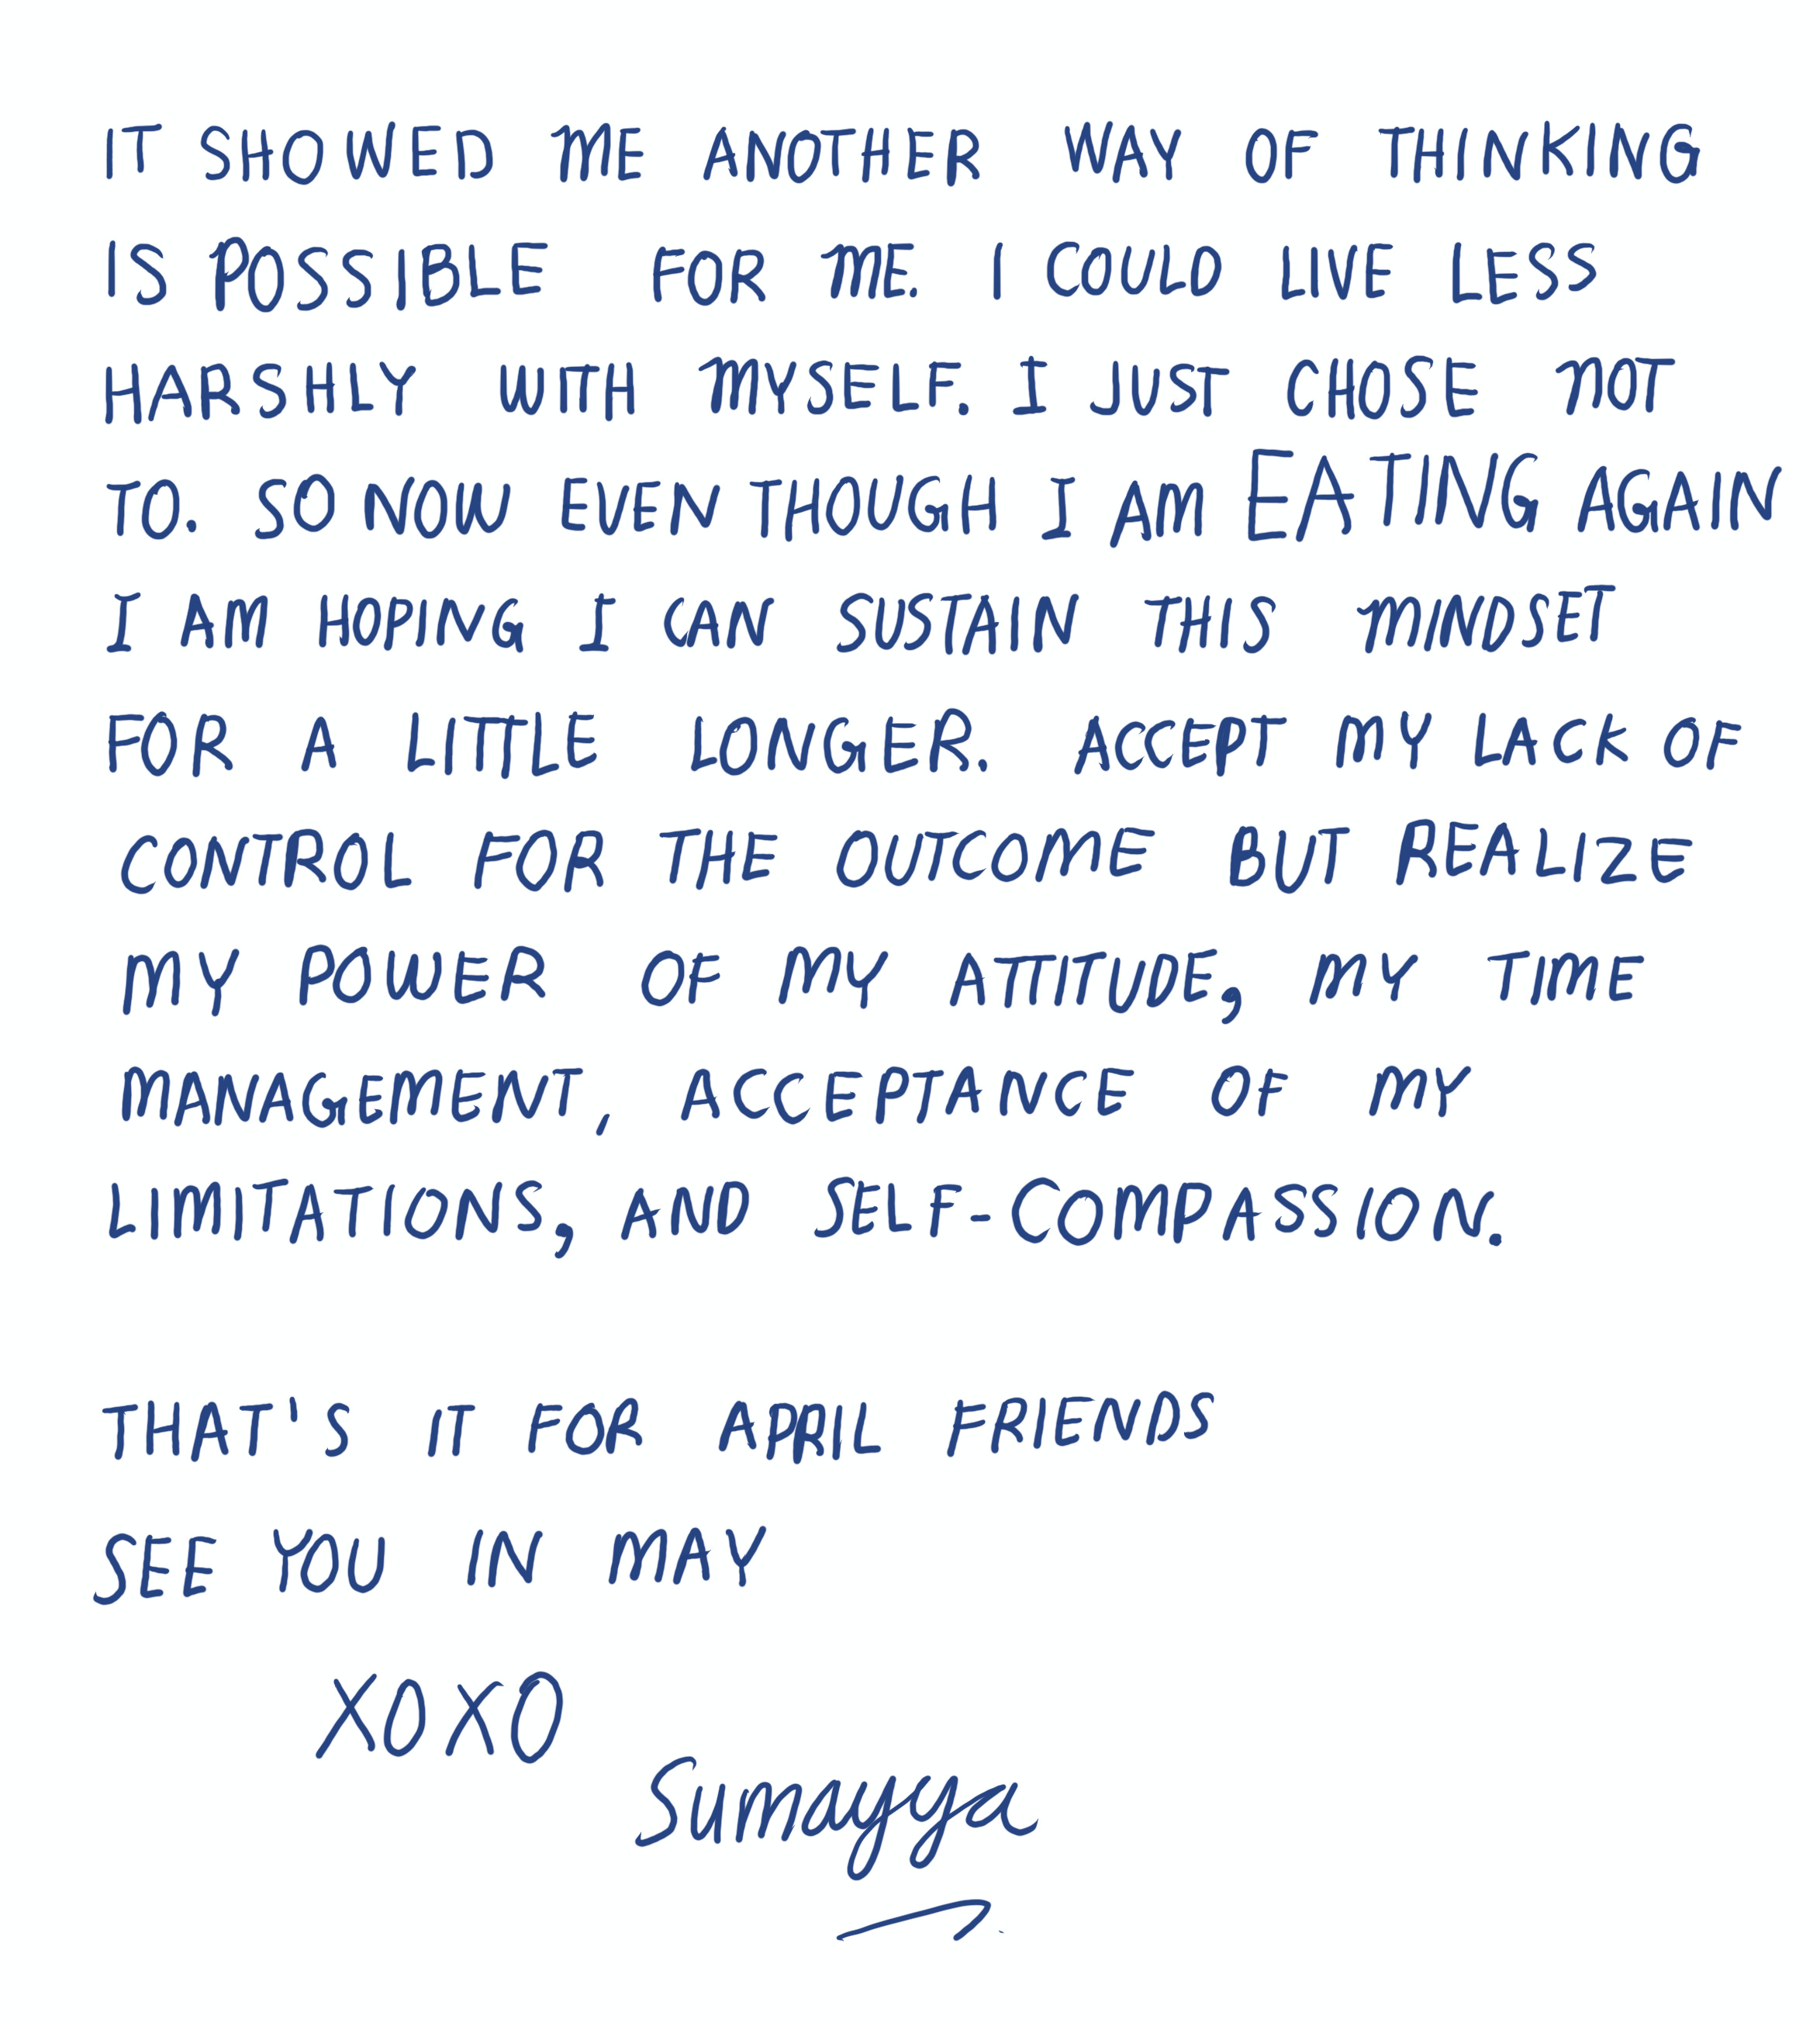 IT SHOWED ME ANOTHER WAY OF THINKING
IS POSSIBLE FOR ME. I COULD LIVE LESS
HARSHLY WITH MYSELF. I JUST CHOSE NOT
TO. SO NOW EVEN THOUGH I AM EATING AGAIN
I AM HOPING I CAN SUSTAIN THIS MINDSET
FOR A LITTLE LONGER. ACCEPT MY LACK OF
CONTROL FOR THE OUTCOME BUT REALIZE
MY POWER OF MY ATTITUDE, MY TIME
MANAGEMENT, ACCEPTANCE OF MY
LIMITATIONS, AND SELF-COMPASSION.
THAT'S IT FOR APRIL FRIENDS
SEE YOU IN MAY
XOXO
Sumayya